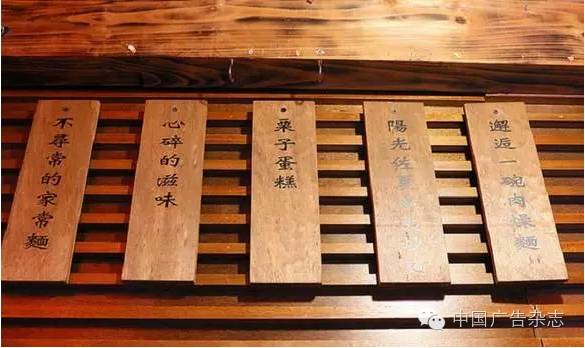 不尋常的家常麵
心碎的滋味
栗子蛋糕
陽光佐
邂逅一碗肉燥麵
中国广告杂志